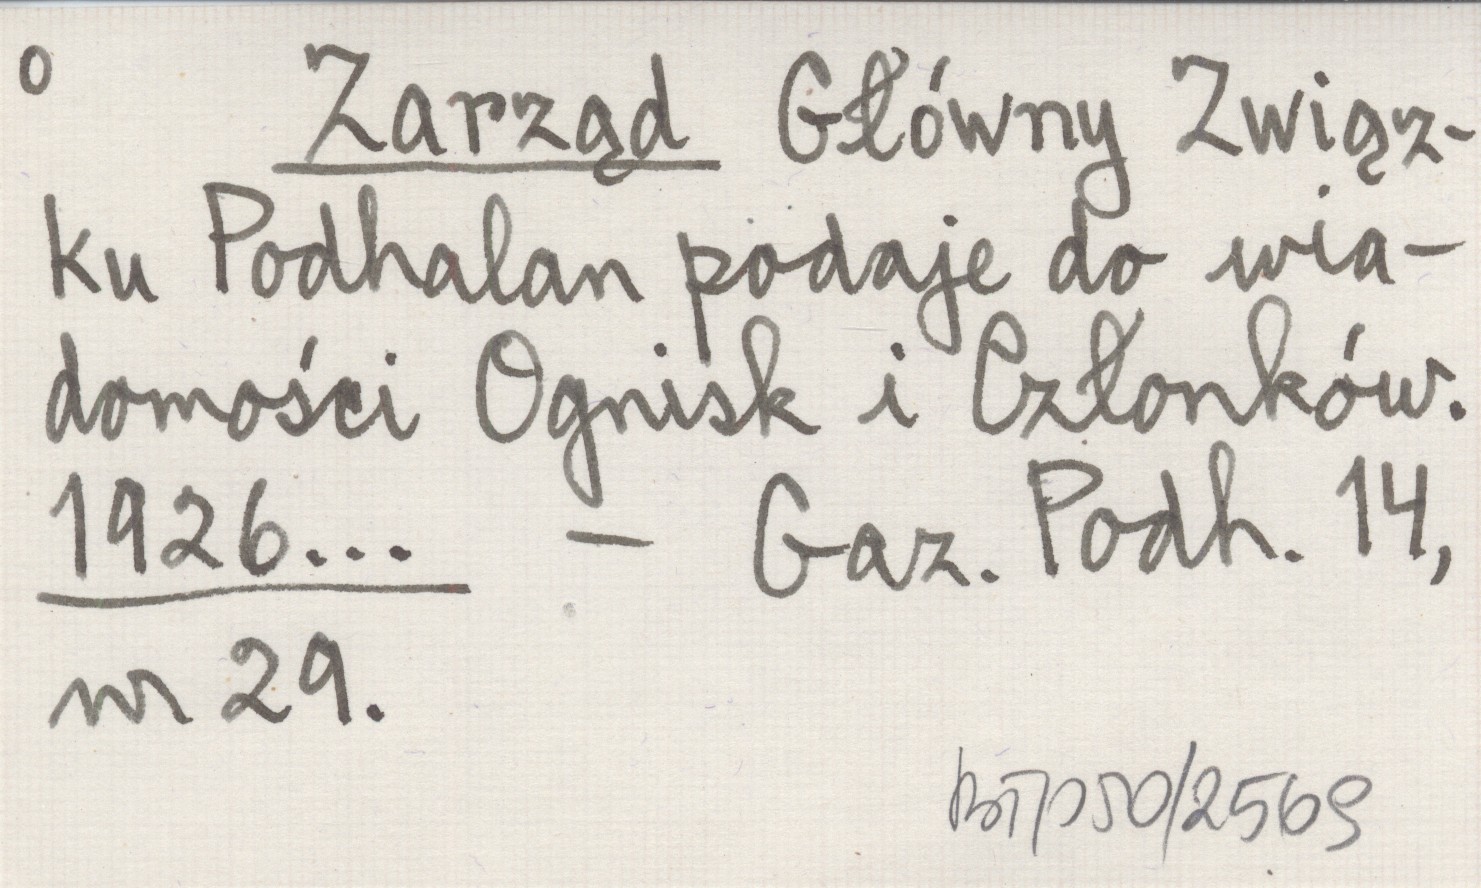 o Zarząd Główny Związ-
ku Podhalan podaje do wia-
domości Ognisk i Członków.
1926... — Gaz. Podh. 14,
nr 29.